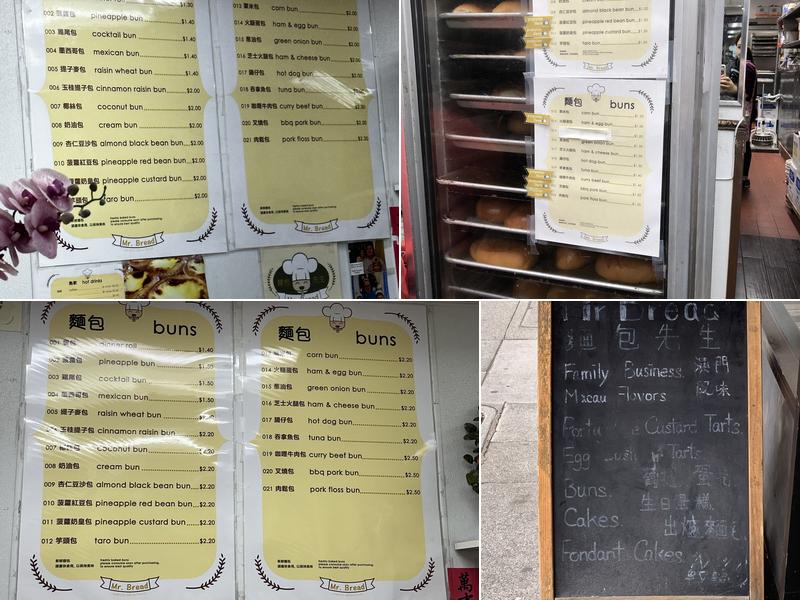 002 菠蘿包 pineapple bun
003 雞尾包 cocktail bun $1.40
004 墨西哥包 mexican bun $1.40
005 提子麥包 raisin wheat bun $1.40
006 玉桂提子包 cinnamon raisin bun $2.00
007 椰絲包 coconut bun $2.00
008 奶油包 cream bun $2.00
009 杏仁豆沙包 almond black bean bun $2.00
010 菠蘿紅豆包 pineapple red bean bun $2.00
pineapple custard bun $2.00
taro bun $2.00
Mr. Bread
hot drinks
013 粟米包 corn bun $2.00
014 火腿蛋包 ham & egg bun $2.00
015 蔥油包 green onion bun $2.00
016 芝士火腿包 ham & cheese bun $2.00
017 腸仔包 hot dog bun $2.00
018 吞拿魚包 tuna bun $2.00
019 咖喱牛肉包 curry beef bun $2.30
020 叉燒包 bbq pork bun $2.30
021 肉鬆包 pork floss bun $2.30
almond black bean bun
pineapple red bean bun
pineapple custard bun
taro bun
Mr. Bread
麵包 buns
corn bun
ham & egg bun
green onion bun
ham & cheese bun
hot dog bun
tuna bun
curry beef bun
bbq pork bun
pork floss bun
麵包 buns
001 dinner roll $1.40
002 菠蘿包 pineapple bun $1.50
003 雞尾包 cocktail bun $1.50
004 墨西哥包 mexican bun $1.50
005 提子麥包 raisin wheat bun
玉桂提子包 cinnamon raisin bun $2.20
coconut bun $2.20
008 奶油包 cream bun $2.20
009 杏仁豆沙包 almond black bean bun $2.20
010 菠蘿紅豆包 pineapple red bean bun $2.20
011 菠蘿奶皇包 pineapple custard bun $2.20
012 芋頭包 taro bun $2.20
新鮮麵包
freshly baked buns
please consume soon after purchasing
to ensure best quality
Mr. Bread
麵包 buns
corn bun $2.20
014 火腿蛋包 ham & egg bun $2.20
015 蔥油包 green onion bun $2.20
016 芝士火腿包 ham & cheese bun $2.20
017 腸仔包 hot dog bun $2.20
018 吞拿魚包 tuna bun $2.20
019 咖喱牛肉包 curry beef bun $2.50
020 叉燒包 bbq pork bun $2.50
021 肉鬆包 pork floss bun $2.50
新鮮麵包
freshly baked buns
please consume soon after purchasing
to ensure best quality
Mr. Bread
Mr Bread
包先生
Family Business 澳門
Macau Flavors 風味
Custard Tarts
Egg Tarts
Buns 蛋
Cakes 生日蛋糕
出爐麵包
Fondant Cakes